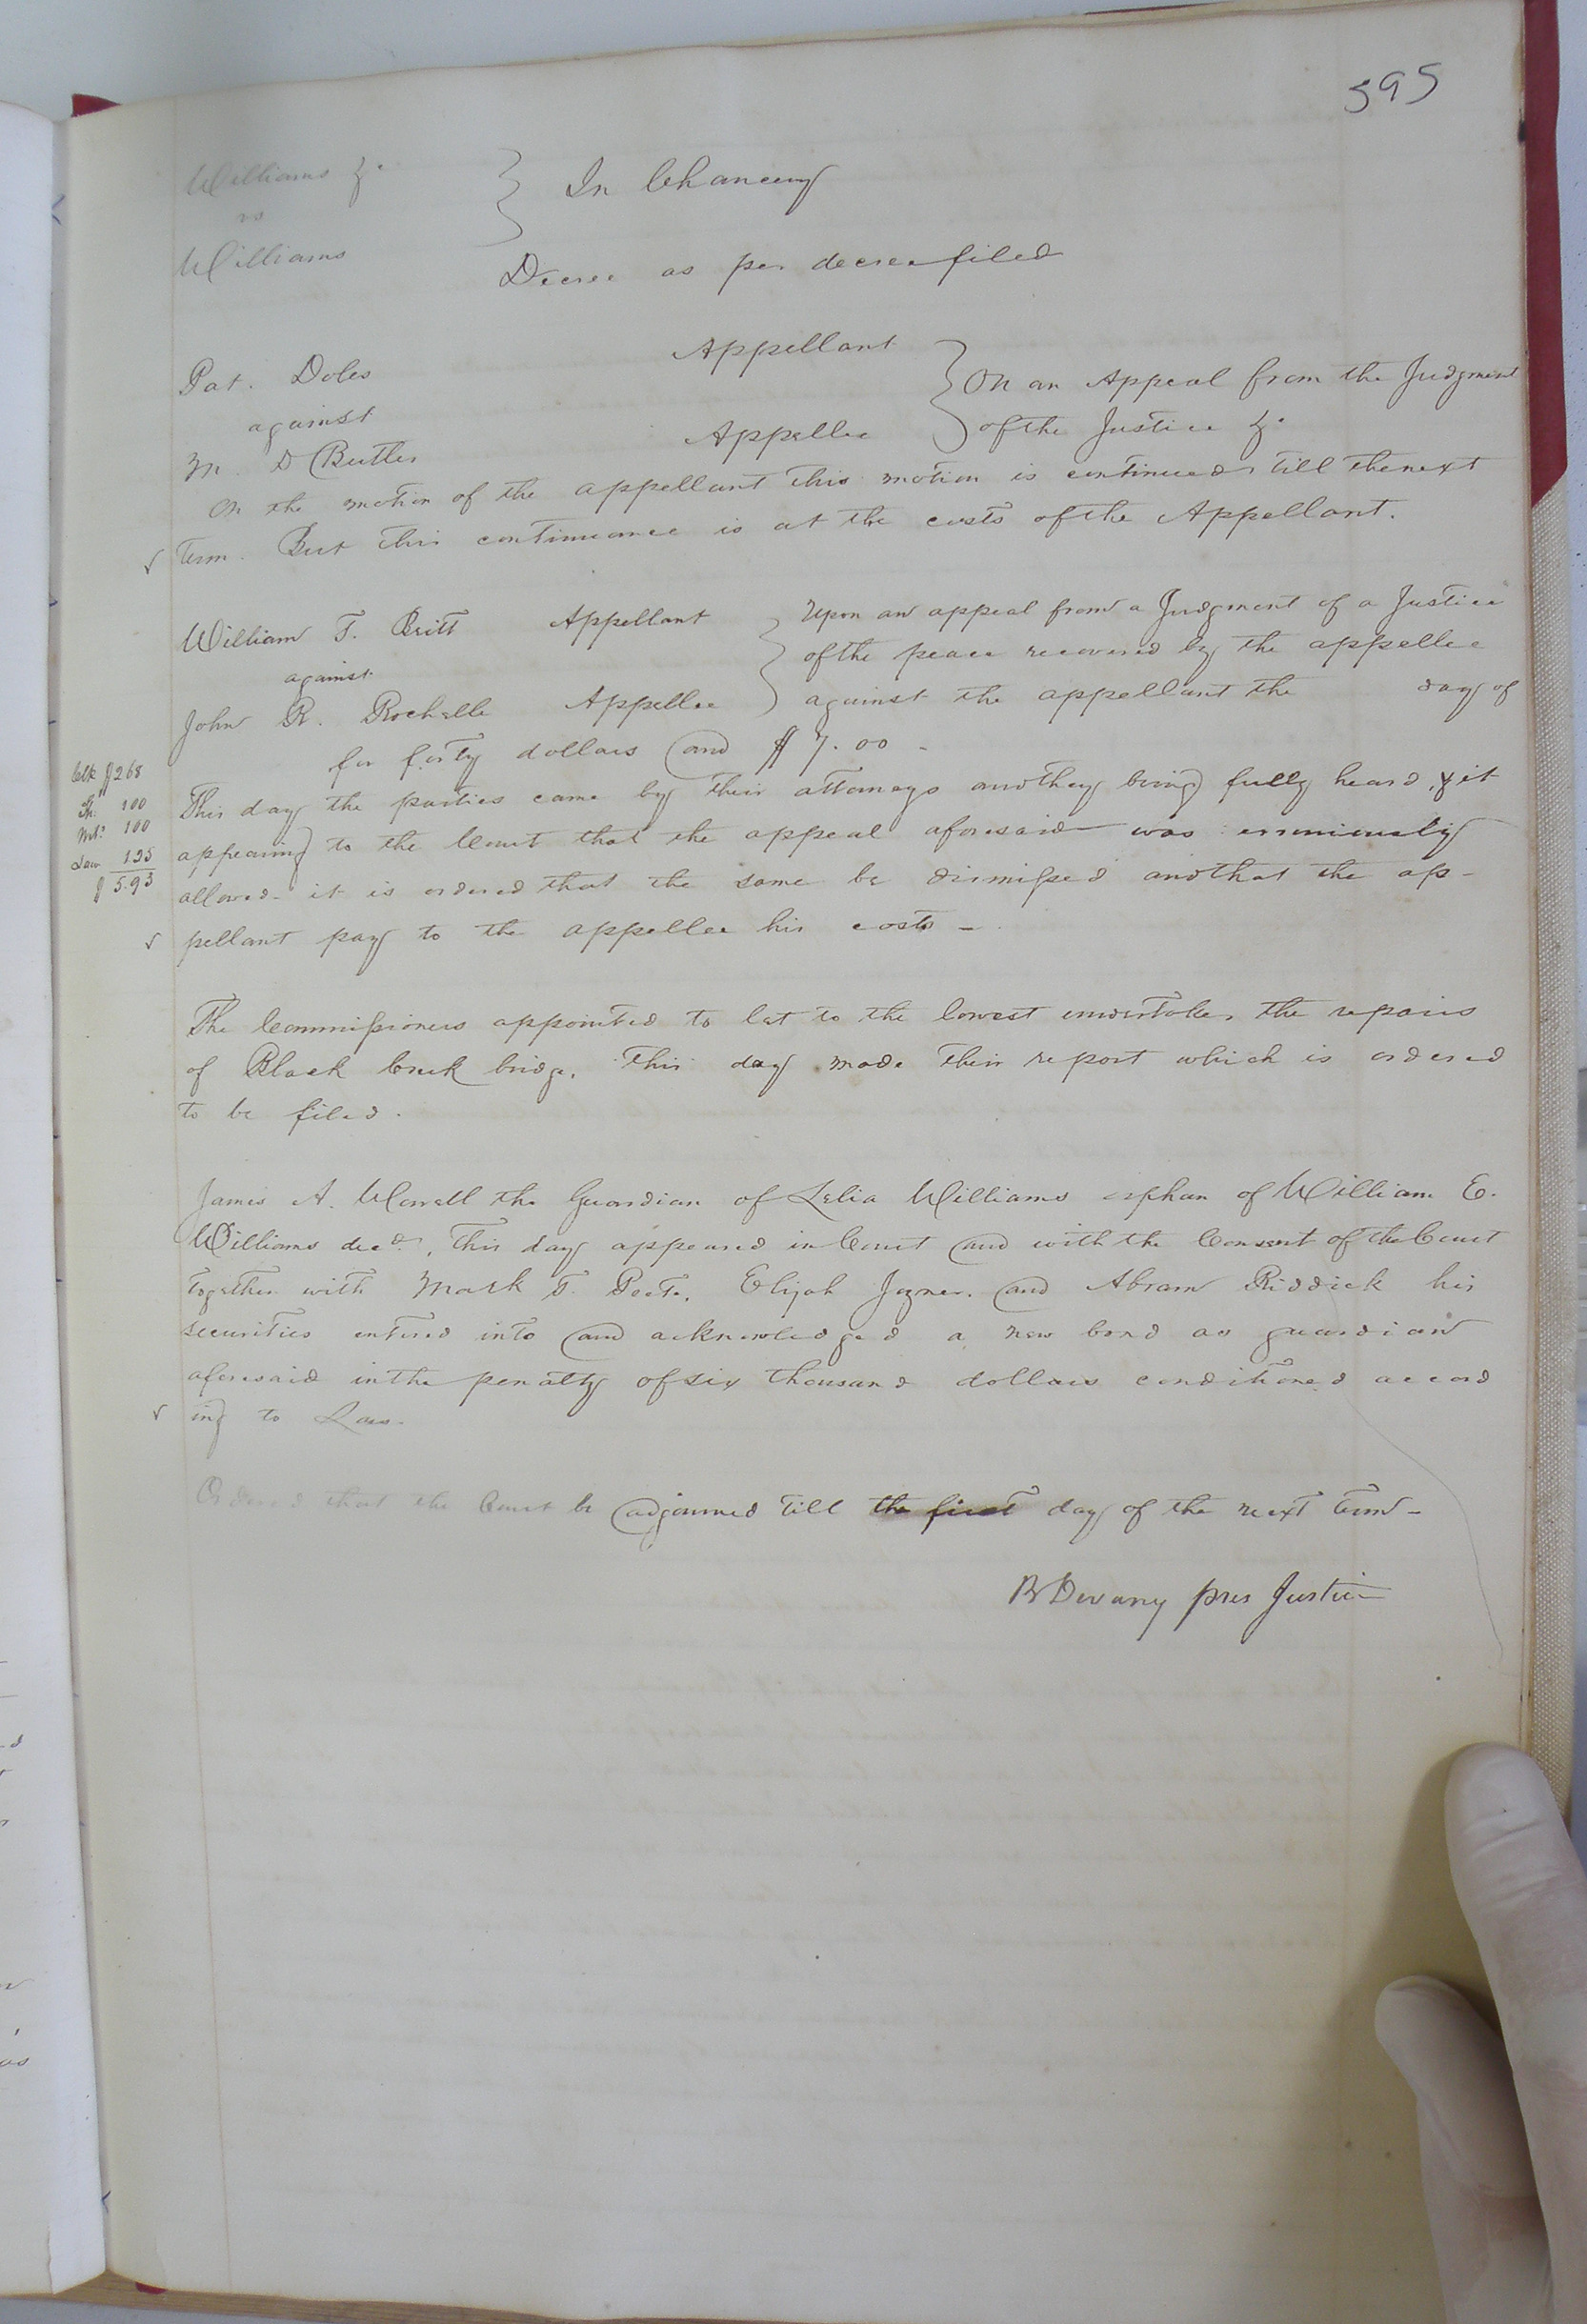 595
Williams &c
vs
Williams
In Chancery
Decree as per decree filed
Pat. Doles Appellant
against
M. D Butler Appellee
On an Appeal from the Judgment
of the Justice &c
On the motion of the appellant this motion is continued till the next
Term. But this continuance is at the costs of the Appellant.
William T. Britt Appellant
against
John R. Rochelle Appellee
Upon an appeal from a Judgment of a Justice
of the peace recovered by the appellee
against the appellant the day of
for forty dollars and $7.00 -
Clk $2.68
Sh. 100
100
Law 125
$5.93
This day the parties came by their attorneys and they being fully heard, & it
appearing to the Court that the appeal aforesaid was erroniously
allowed - it is ordered that the same be dismissed and that the ap-
pellant pay to the appellee his costs -
The Commissioners appointed to let to the lowest undertaker the repairs
of Black Creek bridge. This day made their report which is ordered
to be filed.
James A. Worrell the Guardian of Lelia Williams orphan of William E.
Williams decd. This day appeared in Court and with the Consent of the Court
together with Mark T. Elijah Joyner and Abram Riddick his
securities entered into and acknowledged a new bond as guardian
aforesaid in the penalty of six thousand dollars conditioned accord
ing to Law.
Ordered that the Court be adjourned till the first day of the next term -
B Devany pres Justice